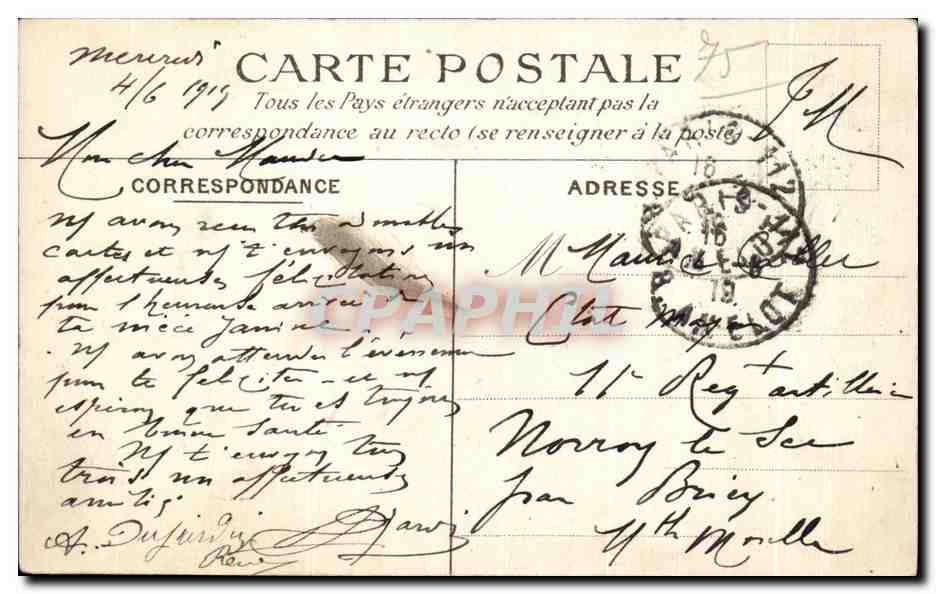 Mercredi
4/6 1919
75
CARTE POSTALE
F M
Tous les Pays étrangers n'acceptent pas la
correspondance au recto (se renseigner à la poste)
Mon cher Maurice
CORRESPONDANCE
Ns avons reçu tes aimables
cartes et ns t'envoyons un
affectueuses félicitations
pour l'heureuse arrivée de
ta nièce Janine.
Ns avons attendu l'événement
pour te féliciter et ns
espérons que tu es toujours
en bonne santé.
Ns t'envoyons tous
trois nos affectueuses
amitiés
A. Dujardin
Dujardin
René
ADRESSE
M Maurice
Etat Major
11e Regt artillerie
Norroy le Sec
par Briey
Mthe Moselle
PARIS 112
16
PARIS
16
19
R. JAVELOT
CPAPHIL